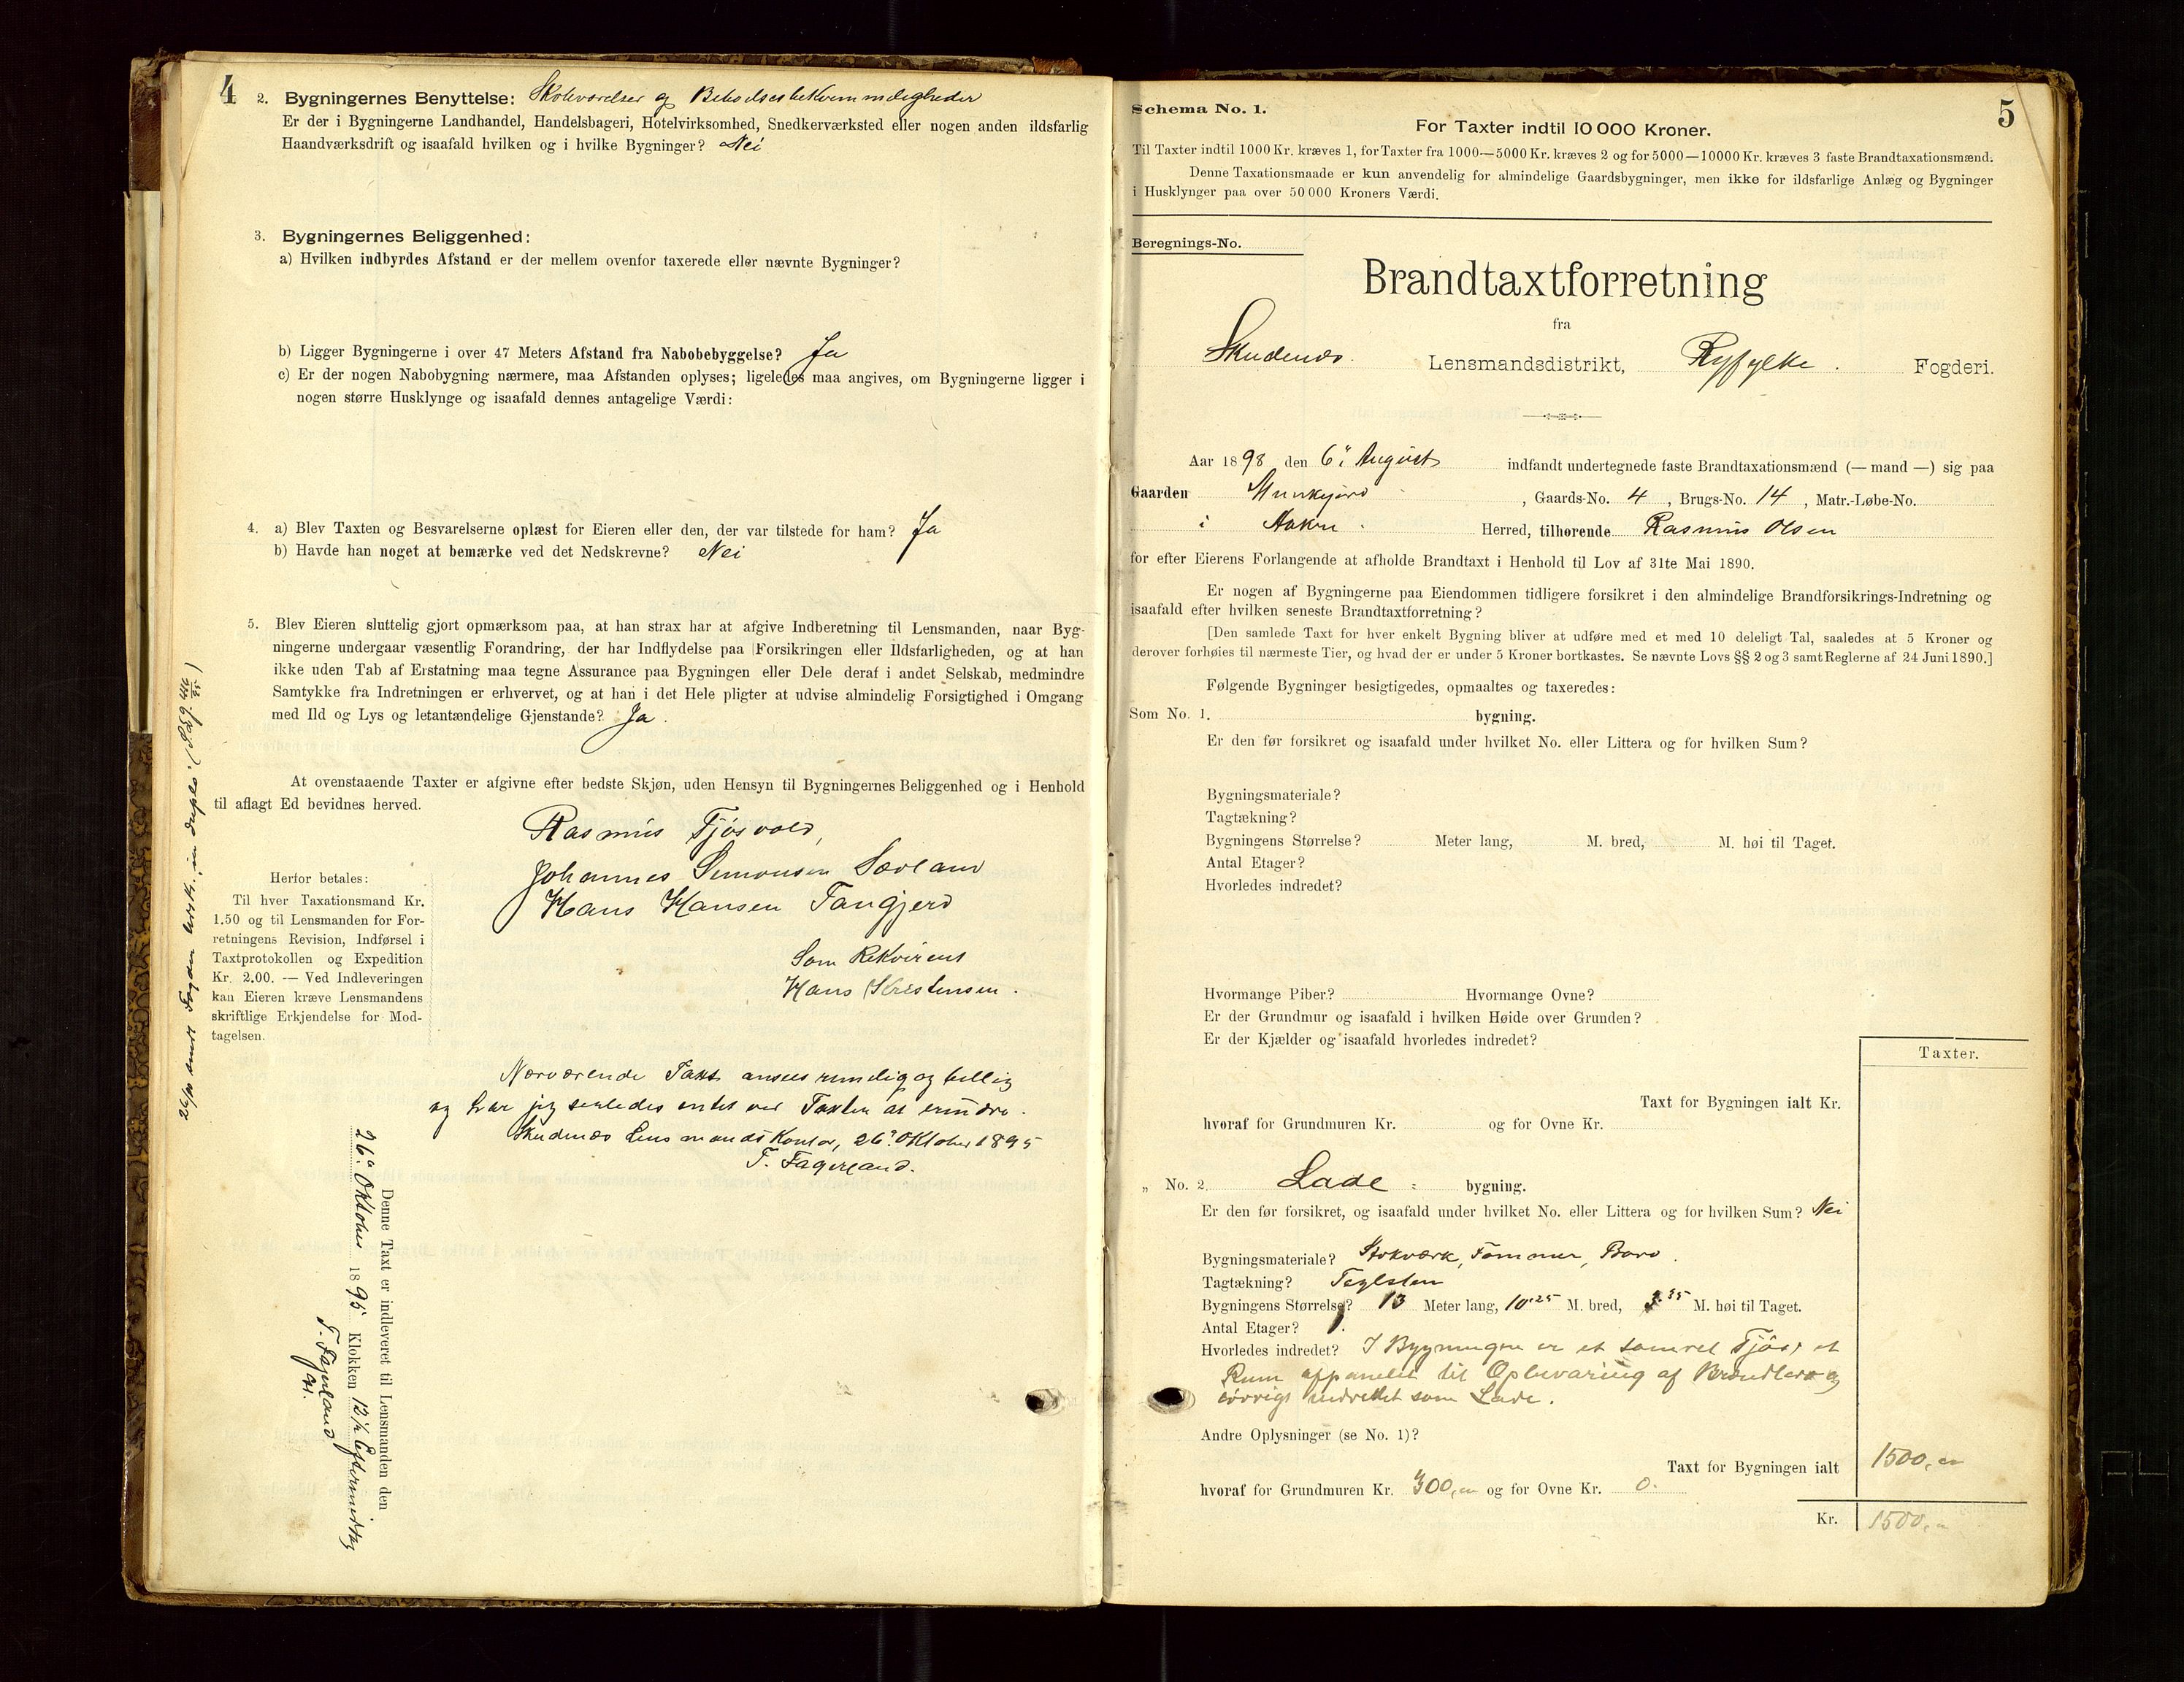 4
2. Bygningernes Benyttelse: Skoleværelser og Beboelsesbekvemmeligheder
Er der i Bygningerne Landhandel, Handelsbageri, Hotelvirksomhed, Snedkerværksted eller nogen anden ildsfarlig
Haandværksdrift og isaafald hvilken og i hvilke Bygninger? Nei
3. Bygningernes Beliggenhed:
a) Hvilken indbyrdes Afstand er der mellem ovenfor taxerede eller nævnte Bygninger?
b) Ligger Bygningerne i over 47 Meters Afstand fra Nabobebyggelse? Ja
c) Er der nogen Nabobygning nærmere, maa Afstanden oplyses; ligeledes maa angives, om Bygningerne ligger i
nogen større Husklynge og isaafald dennes antagelige Værdi:
4. a) Blev Taxten og Besvarelserne oplæst for Eieren eller den, der var tilstede for ham? Ja
b) Havde han noget at bemærke ved det Nedskrevne? Nei
5. Blev Eieren sluttelig gjort opmærksom paa, at han strax har at afgive Indberetning til Lensmanden, naar Byg-
ningerne undergaar væsentlig Forandring, der har Indflydelse paa Forsikringen eller Ildsfarligheden, og at han
ikke uden Tab af Erstatning maa tegne Assurance paa Bygningen eller Dele deraf i andet Selskab, medmindre
Samtykke fra Indretningen er erhvervet, og at han i det Hele pligter at udvise almindelig Forsigtighed i Omgang
med Ild og Lys og letantændelige Gjenstande? Ja.
At ovenstaaende Taxter er afgivne efter bedste Skjøn, uden Hensyn til Bygningernes Beliggenhed og i Henhold
til aflagt Ed bevidnes herved.
Rasmus Tjösvold,
Johannes Simonsen Sævland
Hans Hansen Tangjerd
Som Rekvirent
Hans Kristensen.
Herfor betales:
Til hver Taxationsmand Kr.
1.50 og til Lensmanden for For-
retningens Revision, Indførsel i
Taxtprotokollen og Expedition
Kr. 2.00. — Ved Indleveringen
kan Eieren kræve Lensmandens
skriftlige Erkjendelse for Mod-
tagelsen.
Nærværende Taxt ansees rimelig og billig
og har jeg saaledes intet ved Taxten at erindre.
Skudenæs Lensmandskontor, 26. Oktober 1895
T. Fagerland.
Denne Taxt er indleveret til Lensmanden den
26. Oktober 1895 Klokken 12½ Eftermiddag
T. Fagerland
Schema No. 1.
5
For Taxter indtil 10 000 Kroner.
Til Taxter indtil 1000 Kr. kræves 1, for Taxter fra 1000—5000 Kr. kræves 2 og for 5000—10000 Kr. kræves 3 faste Brandtaxationsmænd.
Denne Taxationsmaade er kun anvendelig for almindelige Gaardsbygninger, men ikke for ildsfarlige Anlæg og Bygninger
i Husklynger paa over 50 000 Kroners Værdi.
Beregnings-No.
Brandtaxtforretning
fra
Skudenæs Lensmandsdistrikt, Ryfylke. Fogderi.
Aar 1898 den 6. August indfandt undertegnede faste Brandtaxationsmænd (— mand —) sig paa
Gaarden , Gaards-No. 4, Brugs-No. 14, Matr.-Løbe-No.
i Aakre. Herred, tilhørende Rasmus Olsen
for efter Eierens Forlangende at afholde Brandtaxt i Henhold til Lov af 31te Mai 1890.
Er nogen af Bygningerne paa Eiendommen tidligere forsikret i den almindelige Brandforsikrings-Indretning og
isaafald efter hvilken seneste Brandtaxtforretning?
[Den samlede Taxt for hver enkelt Bygning bliver at udføre med et med 10 deleligt Tal, saaledes at 5 Kroner og
derover forhøies til nærmeste Tier, og hvad der er under 5 Kroner bortkastes. Se nævnte Lovs §§ 2 og 3 samt Reglerne af 24 Juni 1890.]
Følgende Bygninger besigtigedes, opmaaltes og taxeredes:
Som No. 1. bygning.
Er den før forsikret og isaafald under hvilket No. eller Littera og for hvilken Sum?
Bygningsmateriale?
Tagtækning?
Bygningens Størrelse? Meter lang, M. bred, M. høi til Taget.
Antal Etager?
Hvorledes indredet?
Hvormange Piber? Hvormange Ovne?
Er der Grundmur og isaafald i hvilken Høide over Grunden?
Er der Kjælder og isaafald hvorledes indredet?
Taxter.
Taxt for Bygningen ialt Kr.
hvoraf for Grundmuren Kr. og for Ovne Kr.
„ No. 2. Lade bygning.
Er den før forsikret, og isaafald under hvilket No. eller Littera og for hvilken Sum? Nei
Bygningsmateriale? Stokværk, Tømmer, Bord.
Tagtækning? Teglsten
Bygningens Størrelse? 13 Meter lang, 10.25 M. bred, 3.35 M. høi til Taget.
Antal Etager? 1.
Hvorledes indredet? I Bygningen er et Tjös, et
Rum afpanelet til Opbevaring af og
iövrigt indrettet som Lade.
Andre Oplysninger (se No. 1)?
Taxt for Bygningen ialt 1500,
hvoraf for Grundmuren Kr. 300, og for Ovne Kr. 0.
Kr. 1500,